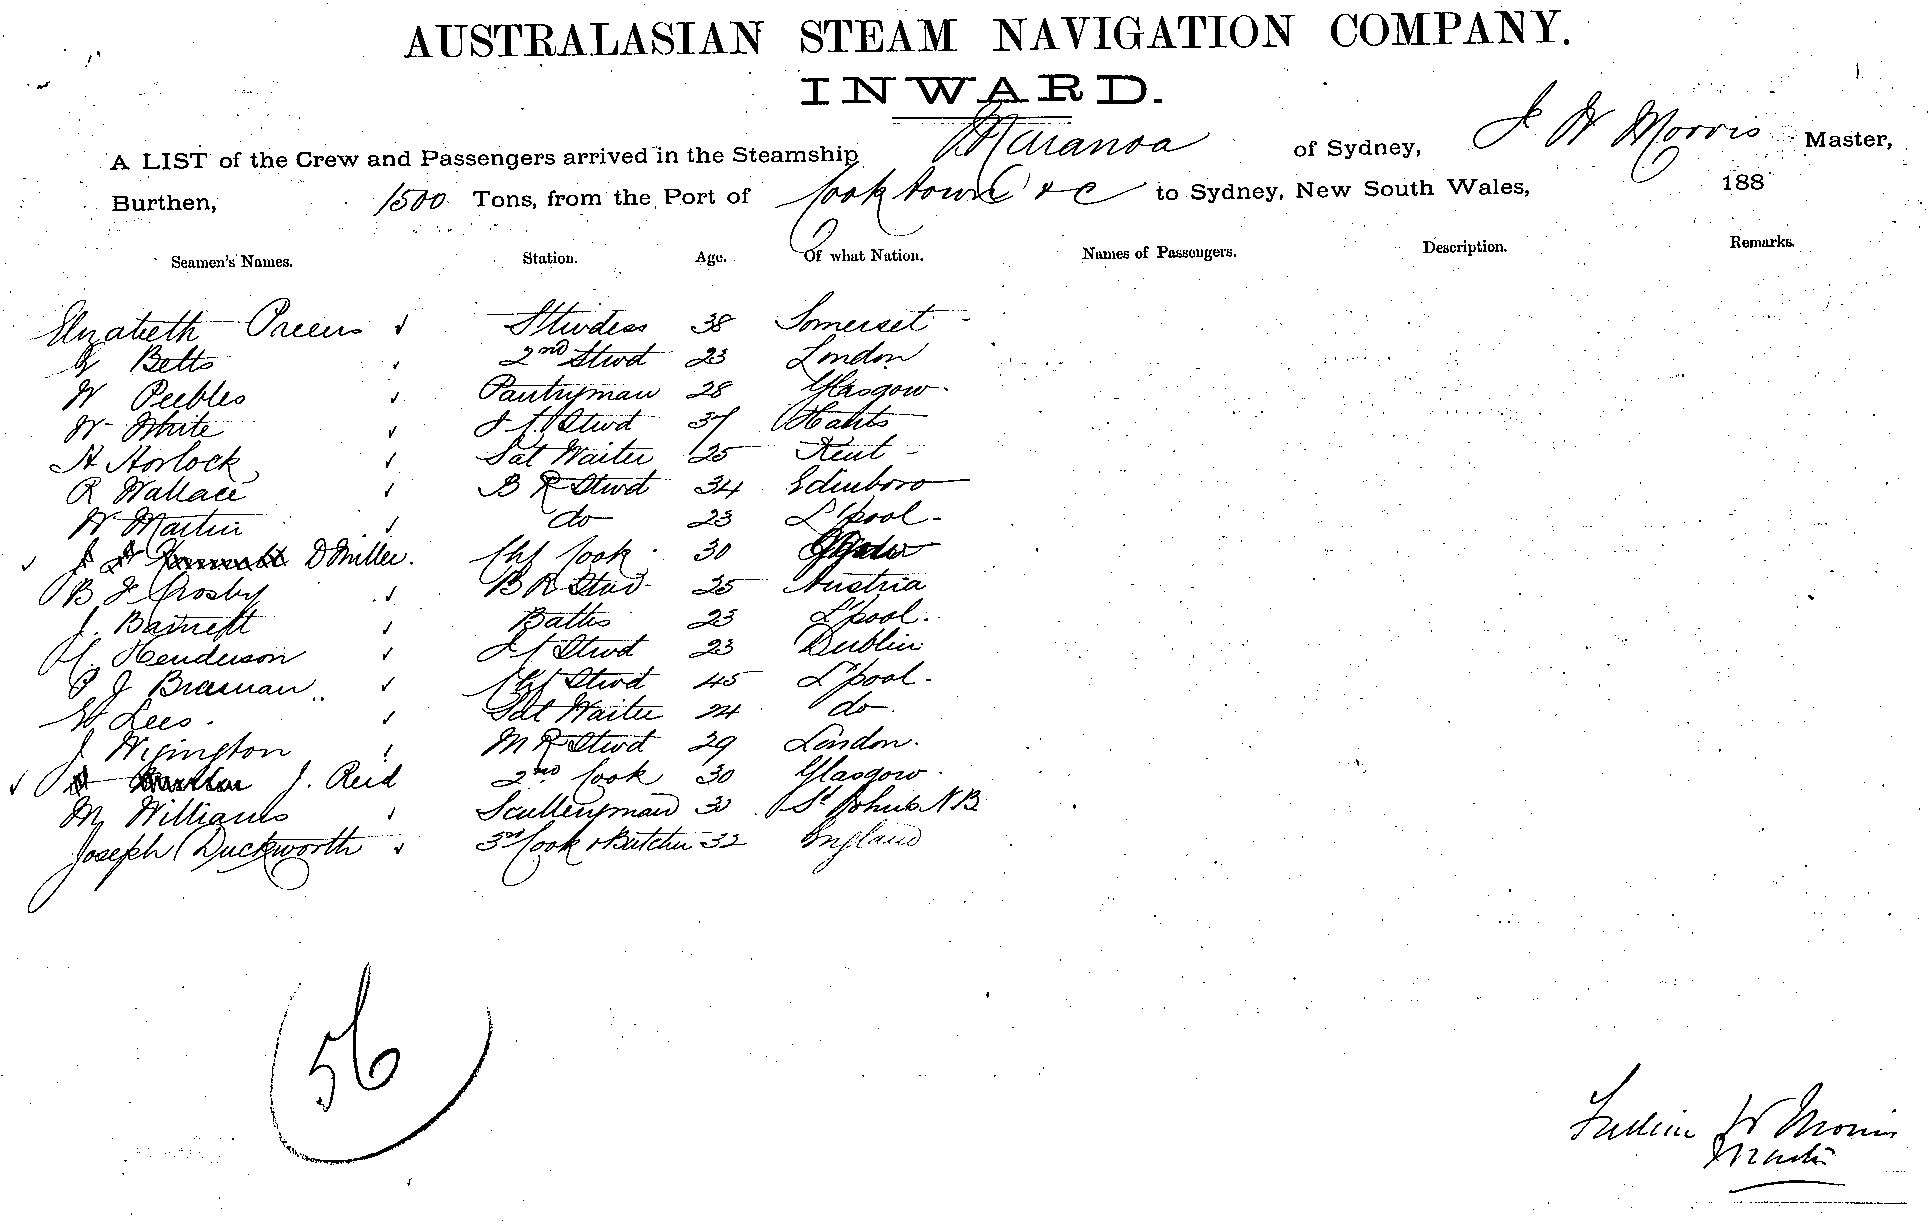 AUSTRALASIAN STEAM NAVIGATION COMPANY.
INWARD.
A LIST of the Crew and Passengers arrived in the Steamship Maranoa of Sydney, F W Morris Master,
Burthen, 1500 Tons, from the Port of Cooktown &c to Sydney, New South Wales, 188
Seamen's Names. Station. Age. Of what Nation. Names of Passengers. Description. Remarks.
Elizabeth Preens Stwdess 38 Somerset
G Betts 2nd Stwd 23 London
W Peebles Pantryman 28 Glasgow
W White F C Stwd 37 Hants
A Horlock Sal Waiter 25 Kent
R Wallace B R Stwd 34 Edinboro
W Martin do 23 L'pool
D Miller. Chf Cook 30
B J Crosby B R Stwd 25 Austria
J. Barnett Baths 23 L'pool.
H. Henderson F C Stwd 23 Dublin
P J Brennan Chf Stwd 45 L'pool.
W Lees. Sal Waiter 24 do
J Wigington M R Stwd 29 London.
J. Reid 2nd Cook 30 Glasgow
M Williams Sculleryman 30 St Johns N B
Joseph Duckworth 3rd Cook & Butcher 32 England
56
W Morris
Master